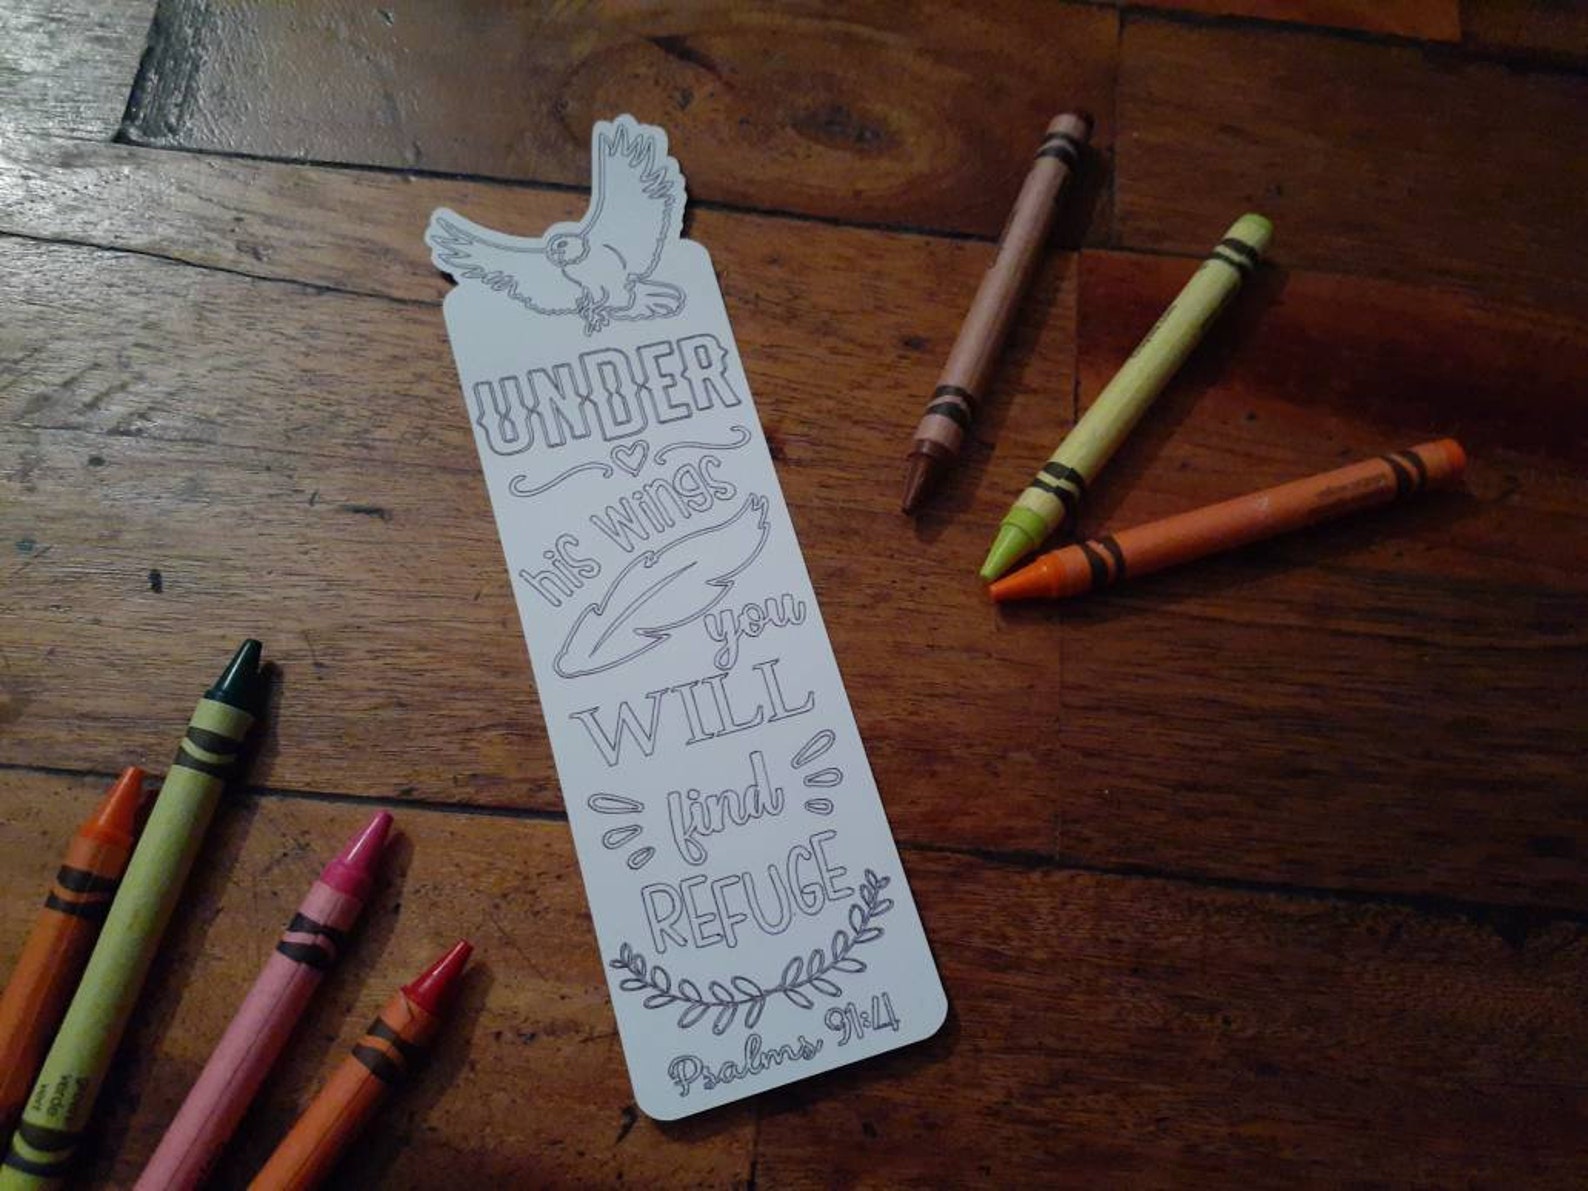 UNDER
his wings
you
WILL
find
REFUGE
Psalms 91:4
verde